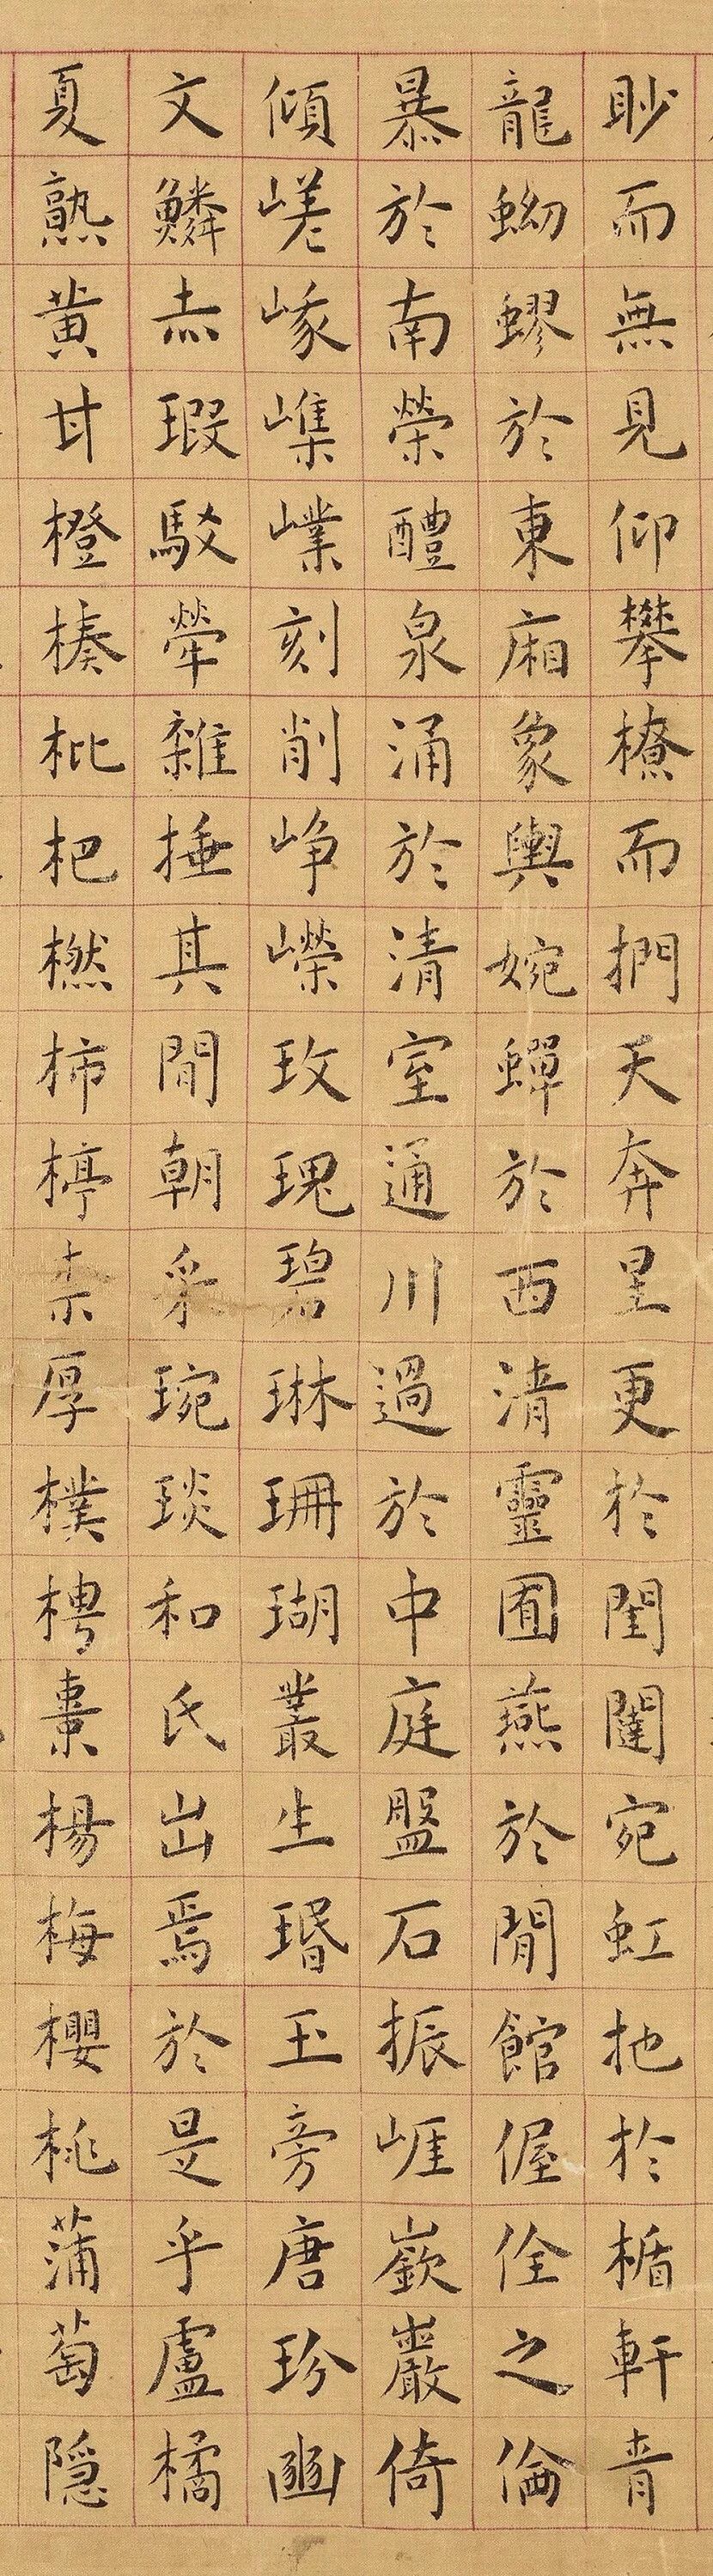 眇而無見仰攀橑而捫天奔星更於閨闥宛虹扡於楯軒青
龍蚴蟉於東廂象輿婉蟬於西清靈圄燕於閒館偓佺之倫
暴於南榮醴泉涌於清室通川過於中庭盤石振崕嶔巖倚
傾嵯峩嶫刻削崢嶸玫瑰碧琳珊瑚叢生瑉玉旁唐玢豳
文鱗赤瑕駁犖雜捶其閒朝采琬琰和氏出焉於是乎盧橘
夏熟黃甘橙楱枇杷橪柿楟柰厚樸梬棗楊梅櫻桃蒲萄隱